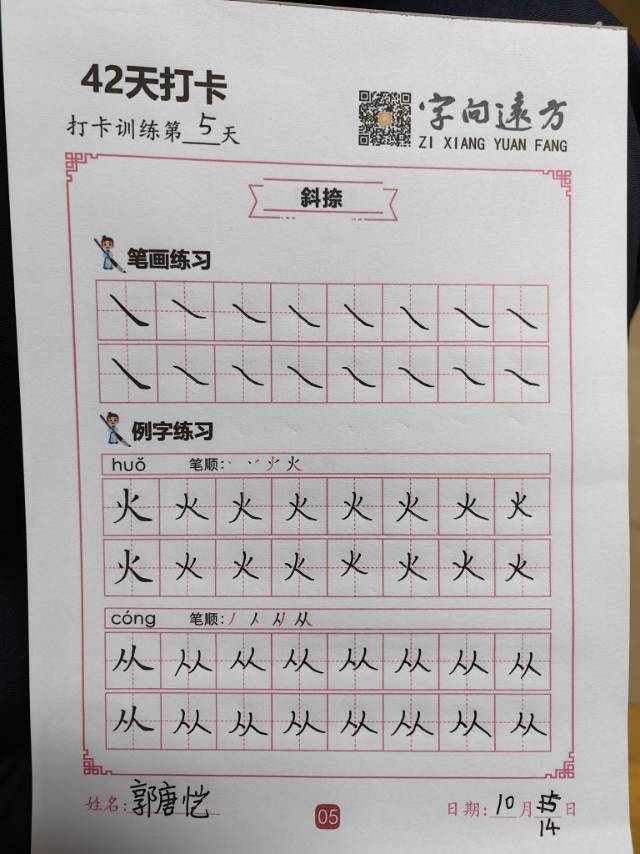 42天打卡
打卡训练第5天
字向远方
ZI XIANG YUAN FANG
斜捺
笔画练习
例字练习
huǒ 笔顺: 火
火火火火火火火火
火火火火火火火火
cóng 笔顺: 从
从从从从从从从从
从从从从从从从从
姓名:郭唐恺
05
日期:10月15日
14